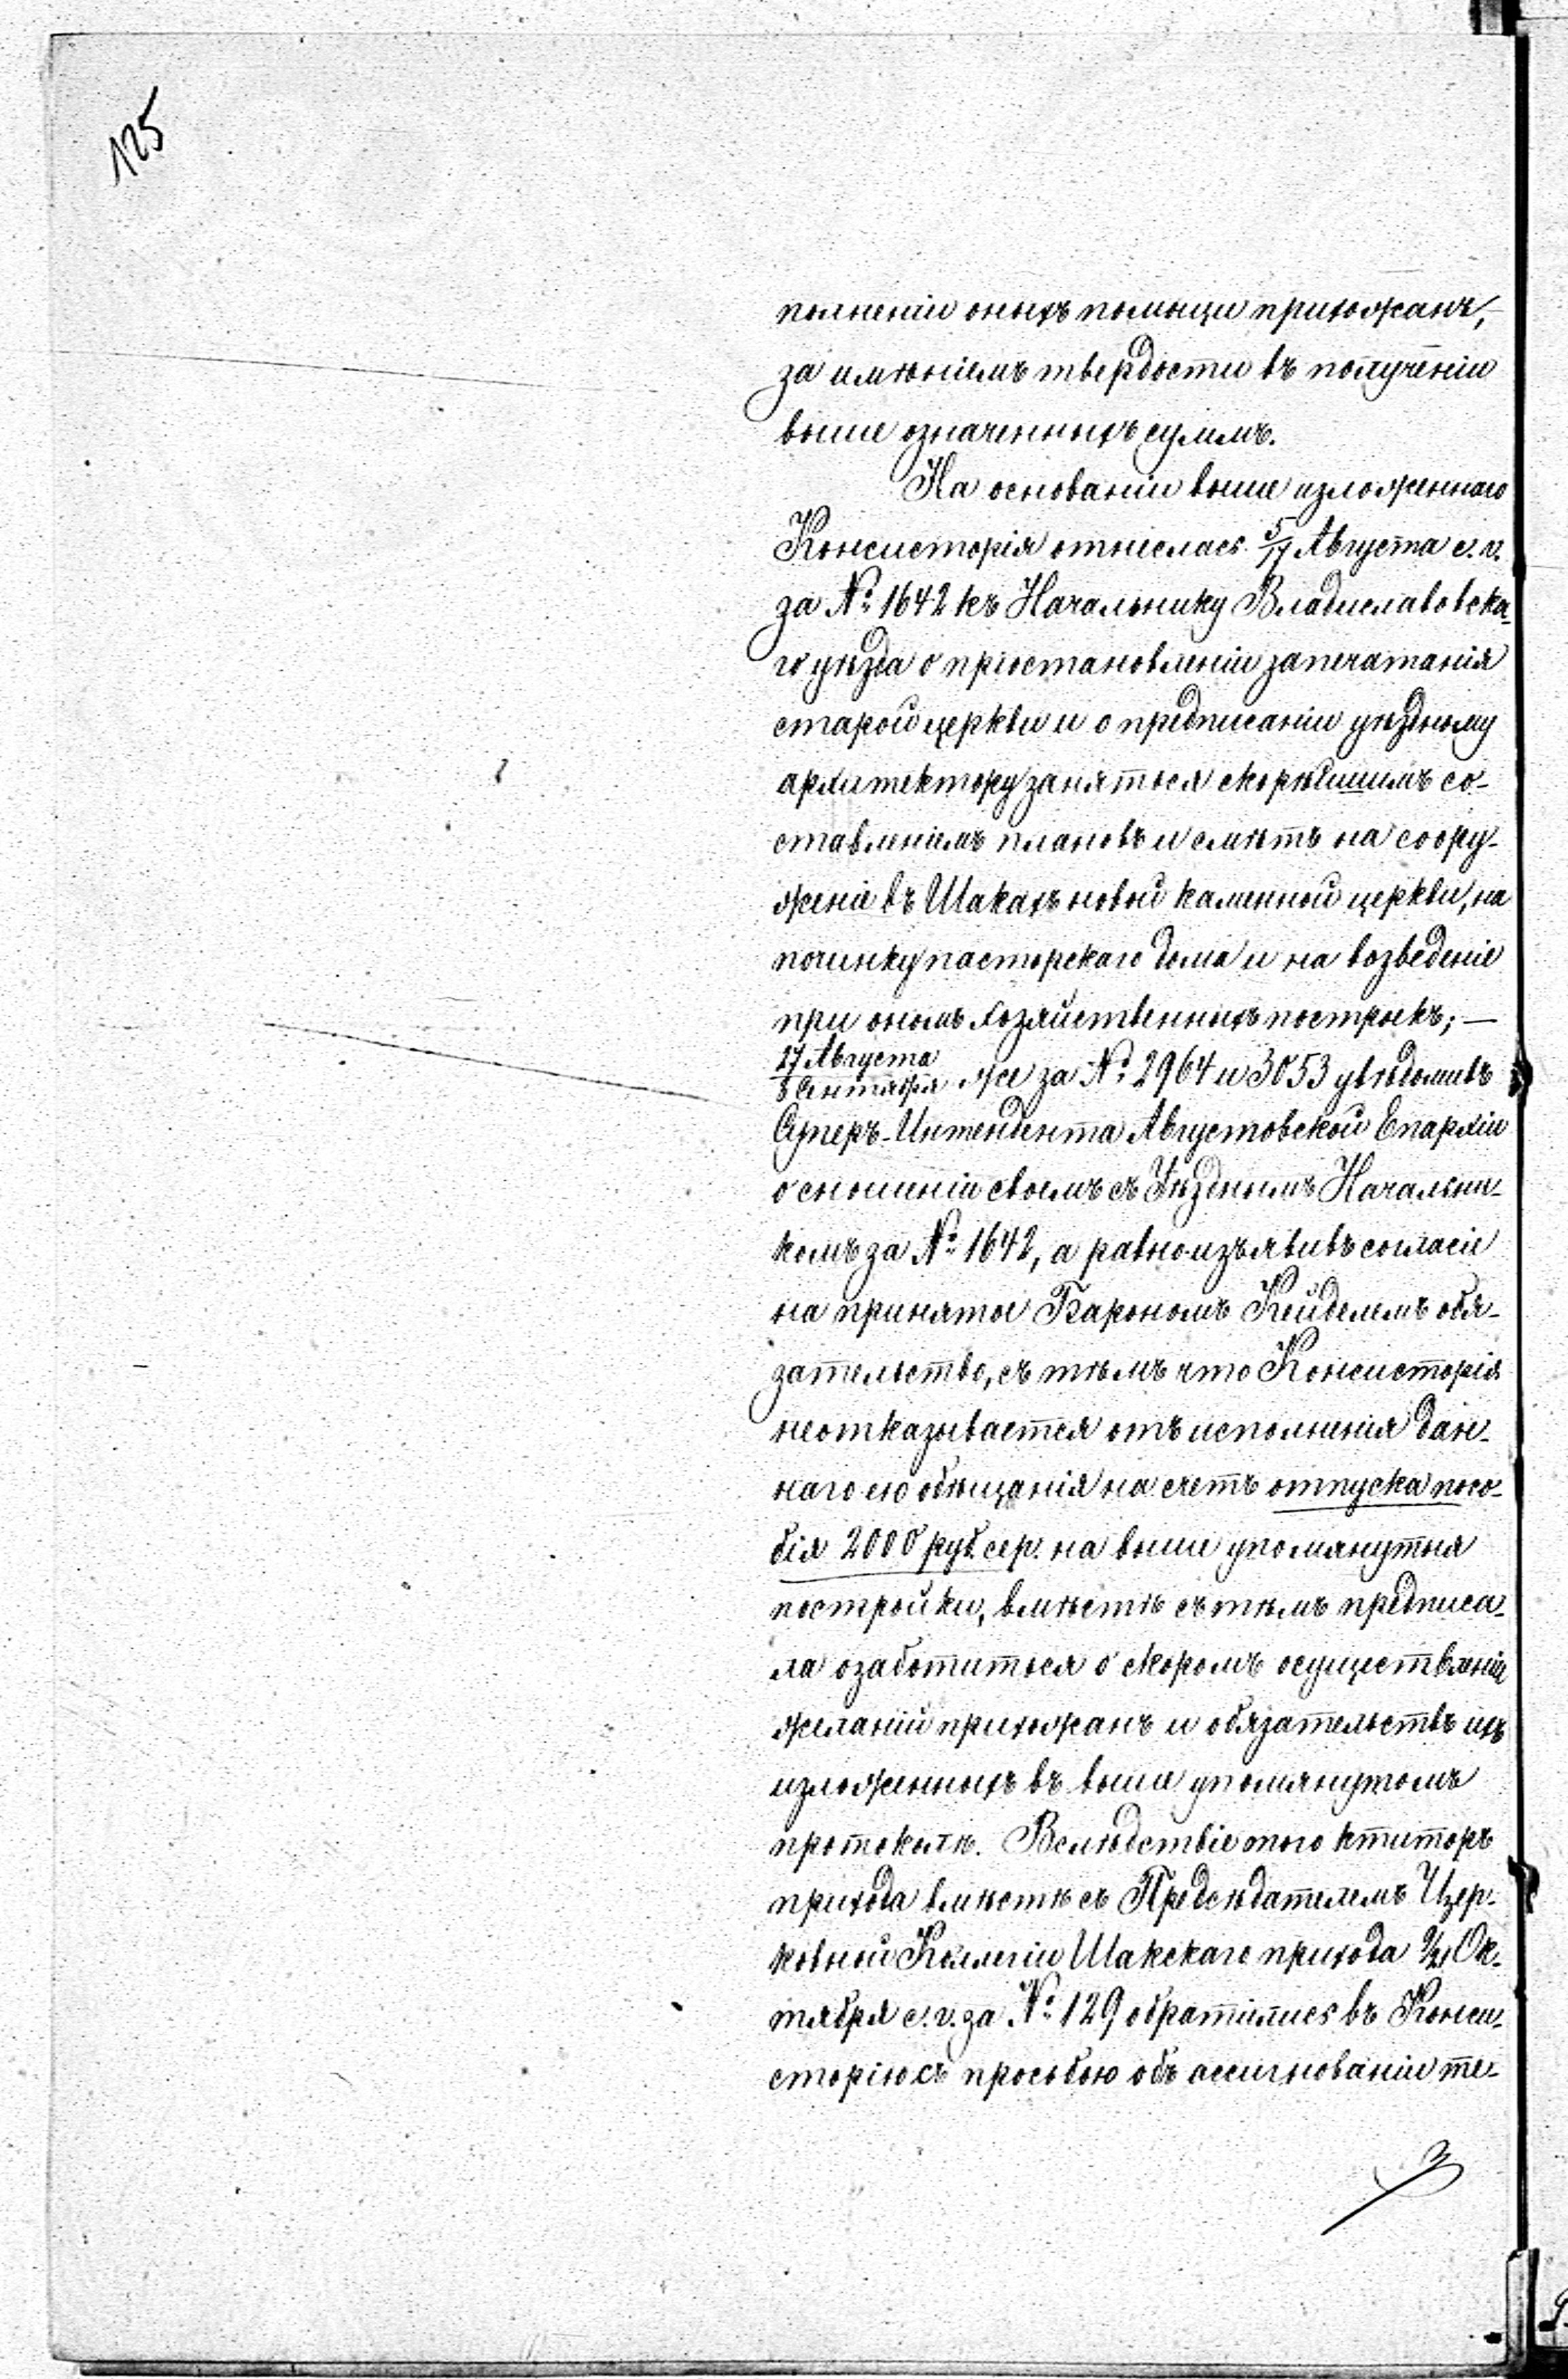 125
полненіи оныхъ помощи прихожанъ,
за имѣніемъ твердости въ полученіи
выше означенныхъ суммъ.
На основаніи выше изложеннаго
Консисторія отнеслась 5/17 Августа с. г.
за № 1642 къ Начальнику Владиславовска-
го уѣзда о пріостановленіи запечатанія
старой церкви и о предписаніи уѣздному
архитектору заняться скорѣйшимъ со-
ставленіемъ плановъ и смѣтъ на соору-
женіе въ Шакахъ новой каменной церкви, на
починку пасторскаго дома и на возведеніе
при ономъ хозяйственныхъ построекъ; —
27 Августа
8 Сентября же за № 2964 и 3053 увѣдомивъ
Суперъ-Интендента Августовской Епархіи
о сношеніи своемъ съ Уѣзднымъ Начальни-
комъ за № 1642, а равно изъявивъ согласіе
на принятое Барономъ Кейделемъ обя-
зательство, съ тѣмъ что Консисторія
не отказывается отъ исполненія дан-
наго ею обѣщанія на счетъ отпуска посо-
бія 2000 руб. сер. на выше упомянутыя
постройки, вмѣстѣ съ тѣмъ предписа-
ла озаботиться о скоромъ осуществленіи
желаній прихожанъ и обязательствъ ихъ
изложенныхъ въ выше упомянутомъ
протоколѣ. Вслѣдствіе того ктиторъ
прихода вмѣстѣ съ Предсѣдателемъ Цер-
ковной Коллегіи Шакскаго прихода Ок-
тября с. г. за № 129 обратились въ Конси-
сторію съ просьбою объ ассигнованіи те-